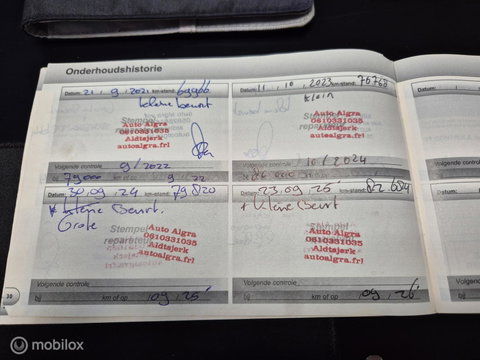 Onderhoudshistorie
Datum: 21 . 9 . 2021 km-stand: 69966
kleine beurt
Stempel
Auto Algra
0610331035
Aldtsjerk
autoalgra.frl
Volgende controle 9/2022
79000 9 . 22
Datum: 11 . 10 . 2023 km-stand: 76768
klein
Stempel
Auto Algra
0610331035
Aldtsjerk
autoalgra.frl
Volgende controle 10/2024
Datum: 30.09.24 km-stand: 79.820
kleine Beurt.
Grote
Stempel
Auto Algra
0610331035
Aldtsjerk
autoalgra.frl
Volgende controle
bij km of op 09.25
Datum: 23.09.25 km-stand: 82684
+ kleine Beurt
Stempel
Auto Algra
0610331035
Aldtsjerk
autoalgra.frl
Volgende controle
bij km of op 09.26
Datum:
Volgende
bij
Datum:
Volgende con
bij
30
mobilox